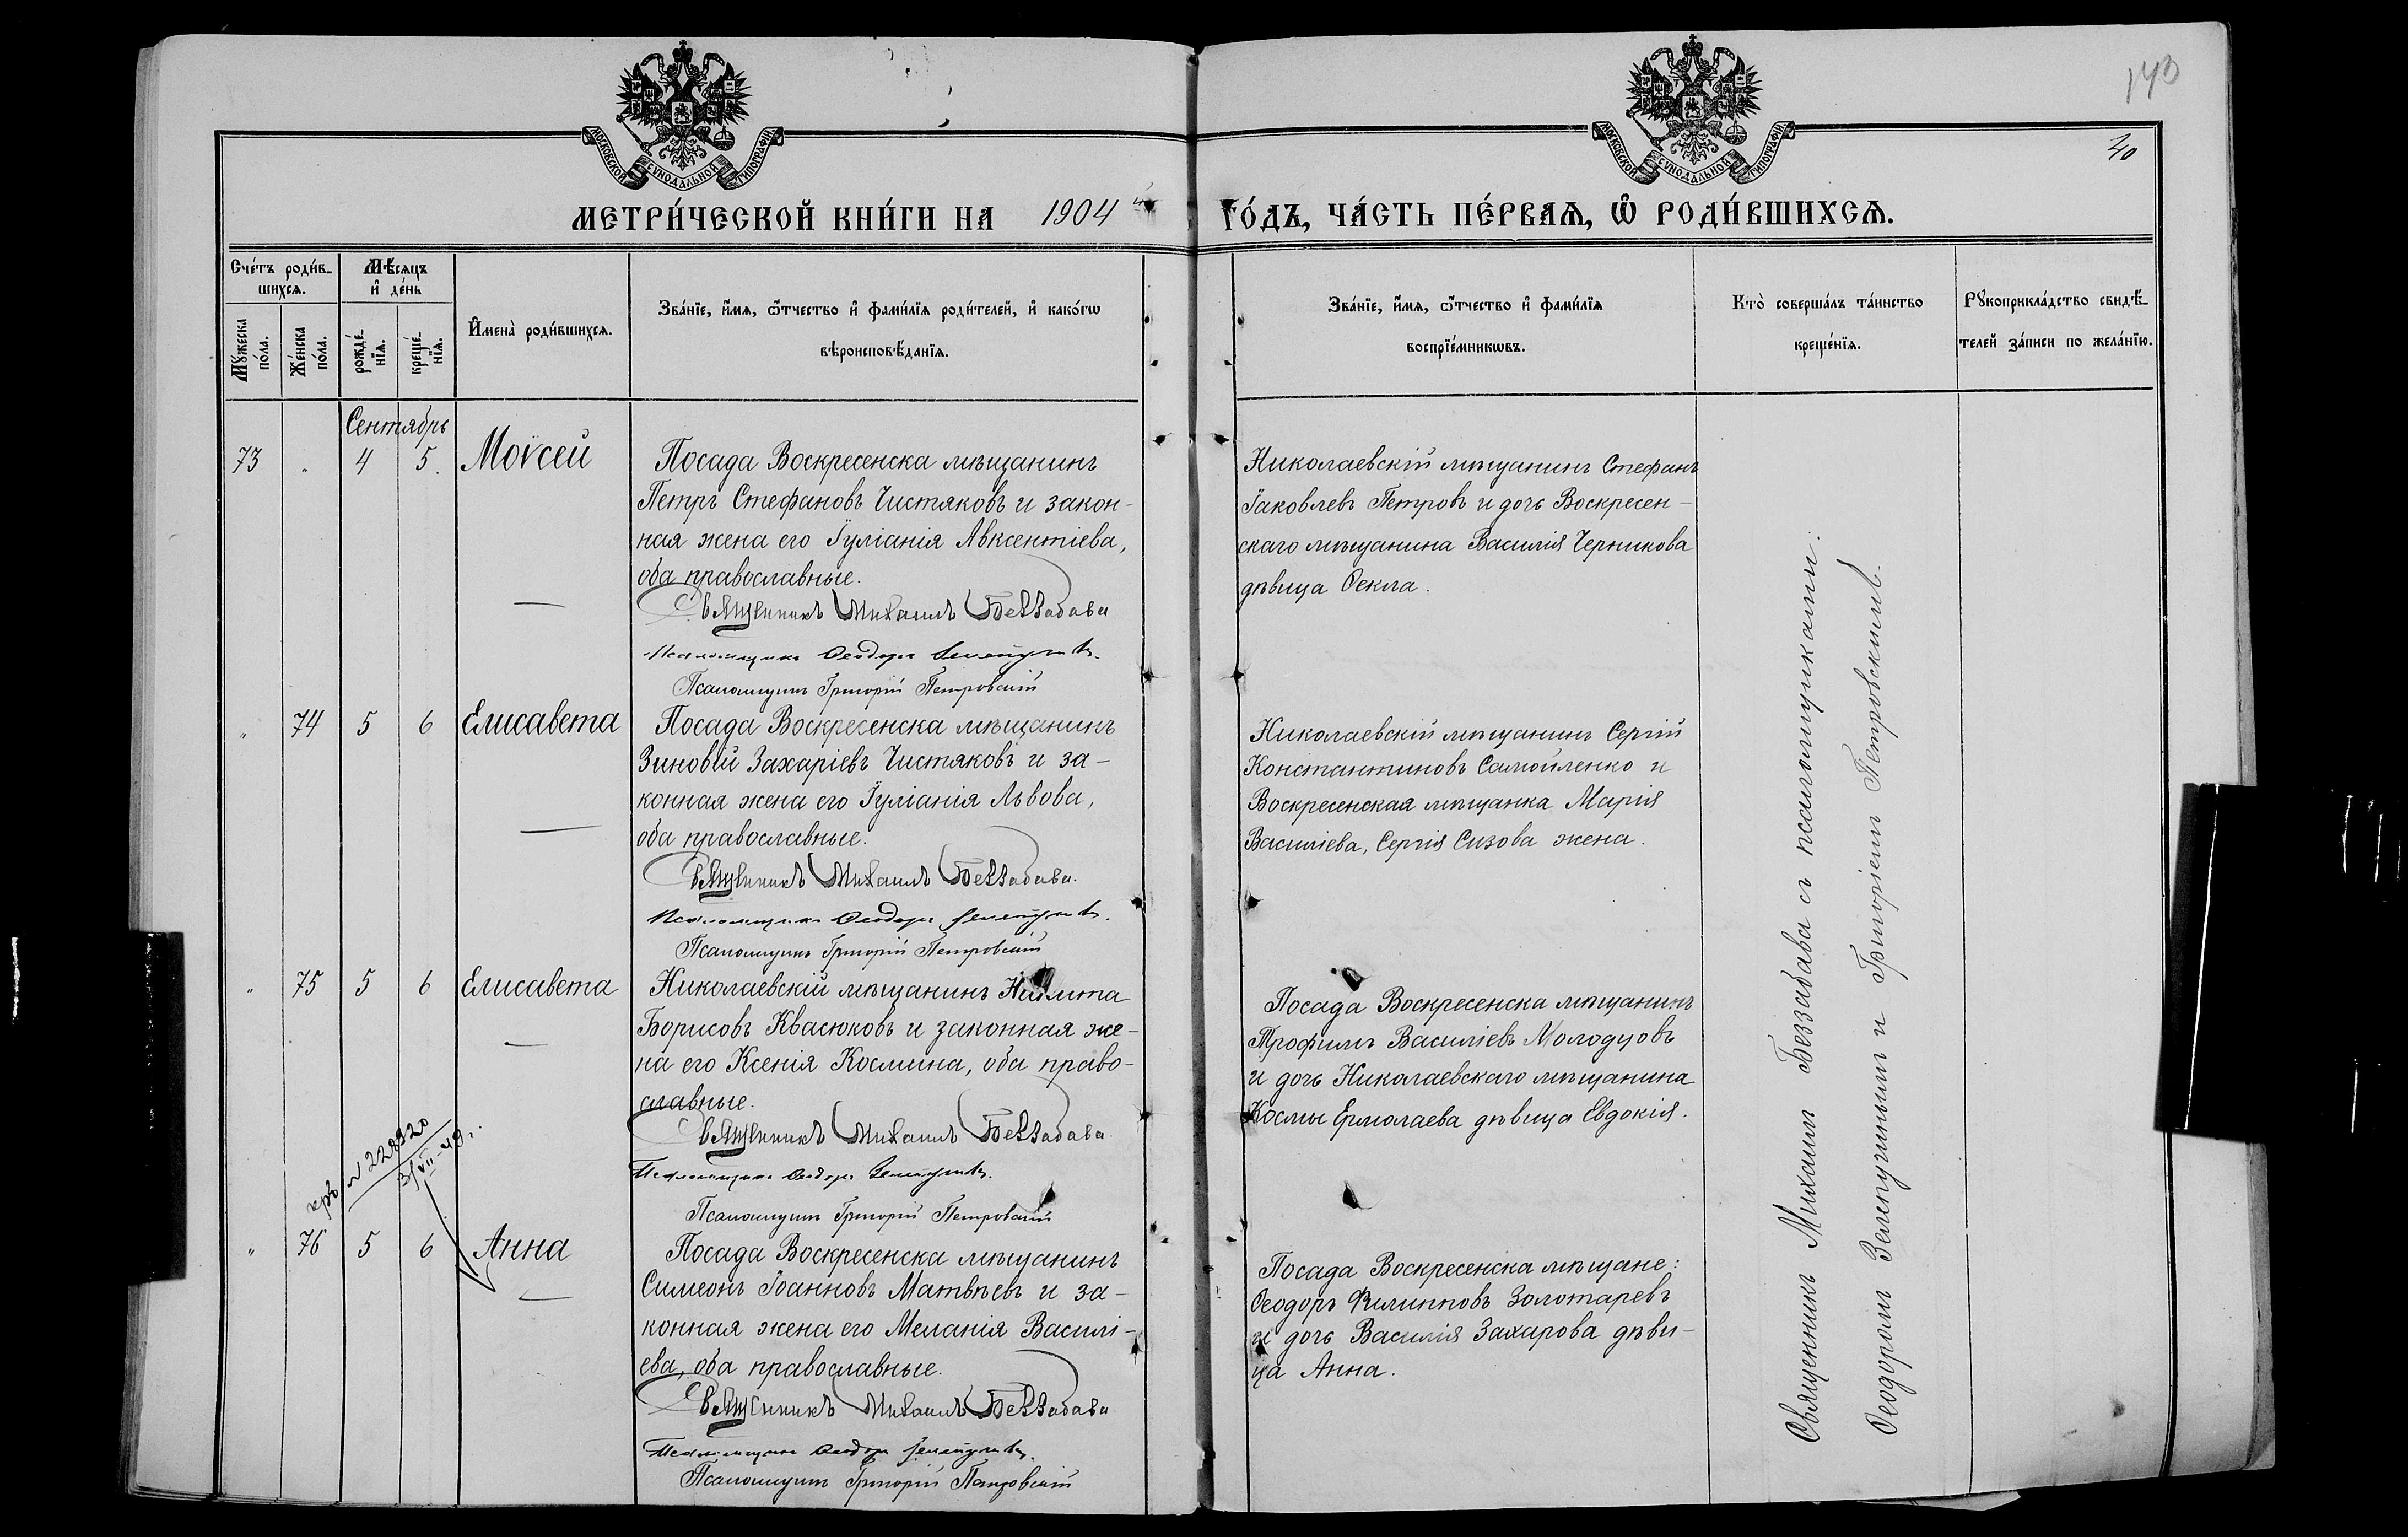 143
40
МОСКОВСКОЙ СѴНОДАЛЬНОЙ ТИПОГРАФІИ
МОСКОВСКОЙ СѴНОДАЛЬНОЙ ТИПОГРАФІИ
МЕТРИ́ЧЕСКОЙ КНИ́ГИ НА 1904 ГО́ДЪ, ЧА́СТЬ ПЕ́РВАѦ, Ѡ҆ РОДИ́ВШИХСѦ.
Сче́тъ роди́в-
шихсѧ.
Мѣ́сѧцъ
и҆ де́нь
Мꙋ́жеска
по́ла.
Же́нска
по́ла.
рожде́-
нїѧ.
креще́-
нїѧ.
И҆мена̀ роди́вшихсѧ.
Зва́нїе, и҆́мѧ, ѻ҆́тчество и҆ фами́лїѧ роди́телей, и҆ како́гѡ
вѣроисповѣ́данїѧ.
Зва́нїе, и҆́мѧ, ѻ҆́тчество и҆ фами́лїѧ
воспрїе́мникѡвъ.
Кто̀ соверша́лъ та́инство
креще́нїѧ.
Рꙋкоприкла́дство свидѣ́-
телей за́писи по жела́нїю.
Сентябрь
73 " 4 5. Моѵсей
Посада Воскресенска мѣщанинъ
Петръ Стефановъ Чистяковъ и закон-
ная жена его Іуліанія Авксентіева,
оба православные.
Священникъ Михаилъ Беззабава
Псаломщикъ Ѳеодоръ Зелепугинъ.
Псаломщикъ Григорій Петровскій
Николаевскій мѣщанинъ Стефанъ
Іаковлевъ Петровъ и дочь Воскресен-
скаго мѣщанина Василія Черникова
дѣвица Ѳекла.
" 74 5 6 Елисавета
Посада Воскресенска мѣщанинъ
Зиновій Захаріевъ Чистяковъ и за-
конная жена его Іуліанія Львова,
оба православные.
Священникъ Михаилъ Беззабава.
Псаломщикъ Ѳеодоръ Зелепугинъ.
Псаломщикъ Григорій Петровскій
Николаевскій мѣщанинъ Сергій
Константиновъ Самойленко и
Воскресенская мѣщанка Марія
Василіева, Сергія Сизова жена.
" 75 5 6 Елисавета
Николаевскій мѣщанинъ Никита
Борисовъ Квасюковъ и законная же-
на его Ксенія Космина, оба право-
славные.
Священникъ Михаилъ Беззабава
Псаломщикъ Ѳеодоръ Зелепугинъ.
Псаломщикъ Григорій Петровскій
Посада Воскресенска мѣщанинъ
Трофимъ Василіевъ Молодцовъ
и дочь Николаевскаго мѣщанина
Космы Ермолаева дѣвица Евдокія.
N 228920
31/VII-49г.
" 76 5 6 Анна
Посада Воскресенска мѣщанинъ
Симеонъ Іоанновъ Матвѣевъ и за-
конная жена его Меланія Василі-
ева, оба православные.
Священникъ Михаилъ Беззабава
Псаломщикъ Ѳеодоръ Зелепугинъ.
Псаломщикъ Григорій Петровскій
Посада Воскресенска мѣщане:
Ѳеодоръ Филипповъ Золотаревъ
и дочь Василія Захарова дѣви-
ца Анна.
Священникъ Михаилъ Беззабава съ псаломщиками:
Ѳеодоромъ Зелепугинымъ и Григоріемъ Петровскимъ.